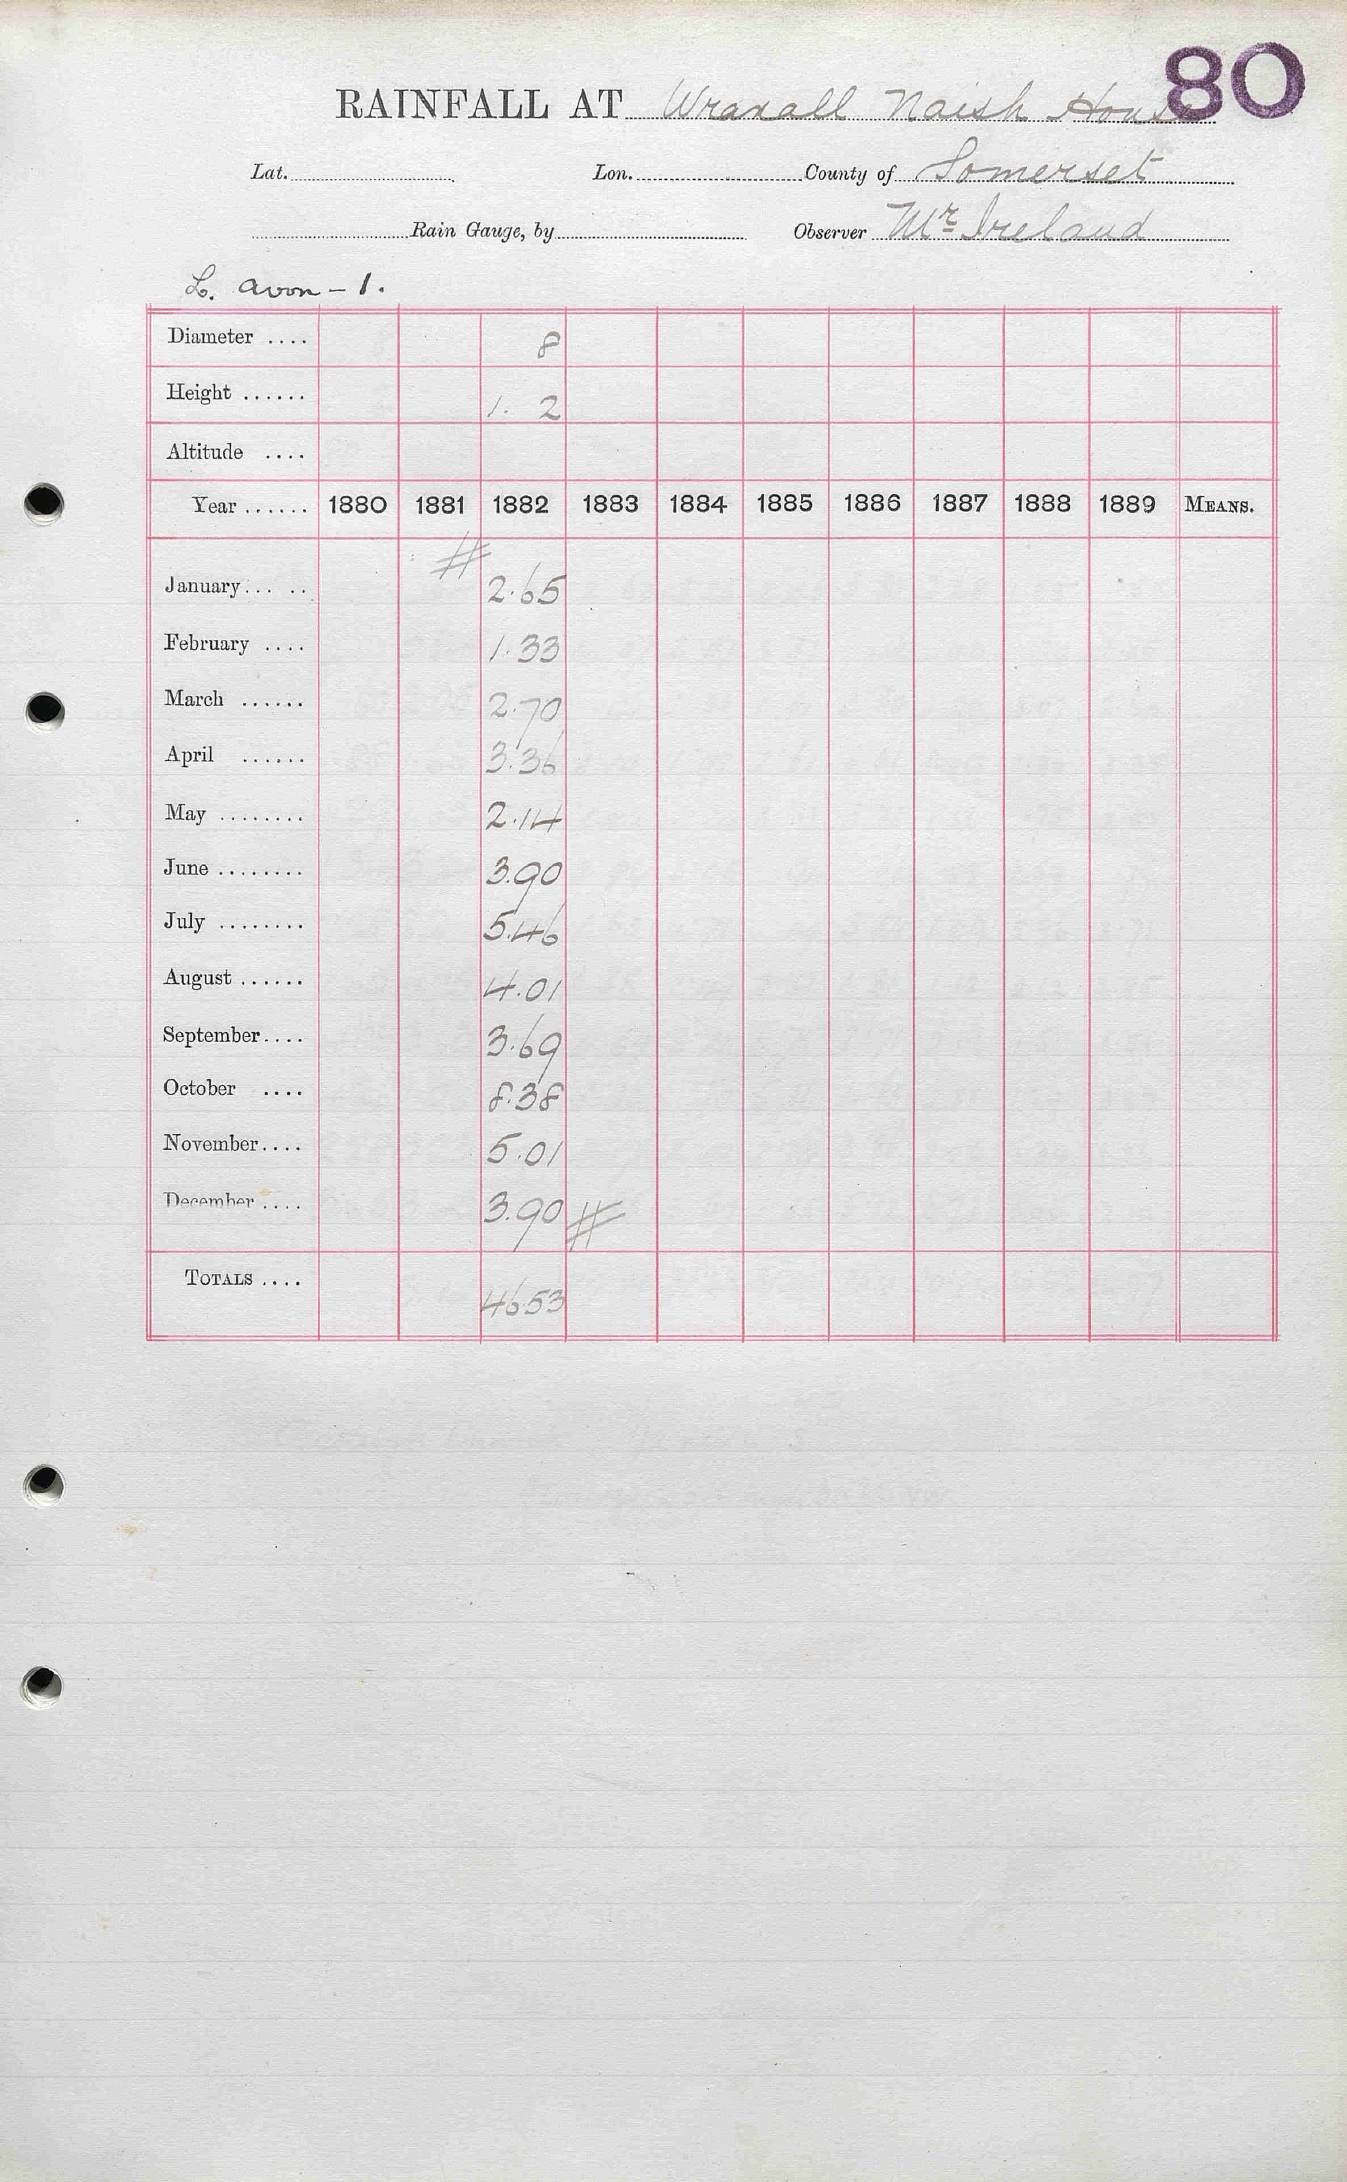 80
RAINFALL AT Wraxall Naish House
Lat. Lon. County of Somerset
Rain Gauge, by Observer Mr Ireland
L. Avon - 1.
Diameter .... 8
Height ...... 1. 2
Altitude ....
Year ...... 1880 1881 1882 1883 1884 1885 1886 1887 1888 1889 MEANS.
#
January... .. 2.65
February .... 1.33
March ...... 2.70
April ...... 3.36
May ........ 2.14
June ........ 3.90
July ........ 5.46
August ...... 4.01
September.... 3.69
October .... 8.38
November.... 5.01
December.... 3.90 #
TOTALS .... 46.53